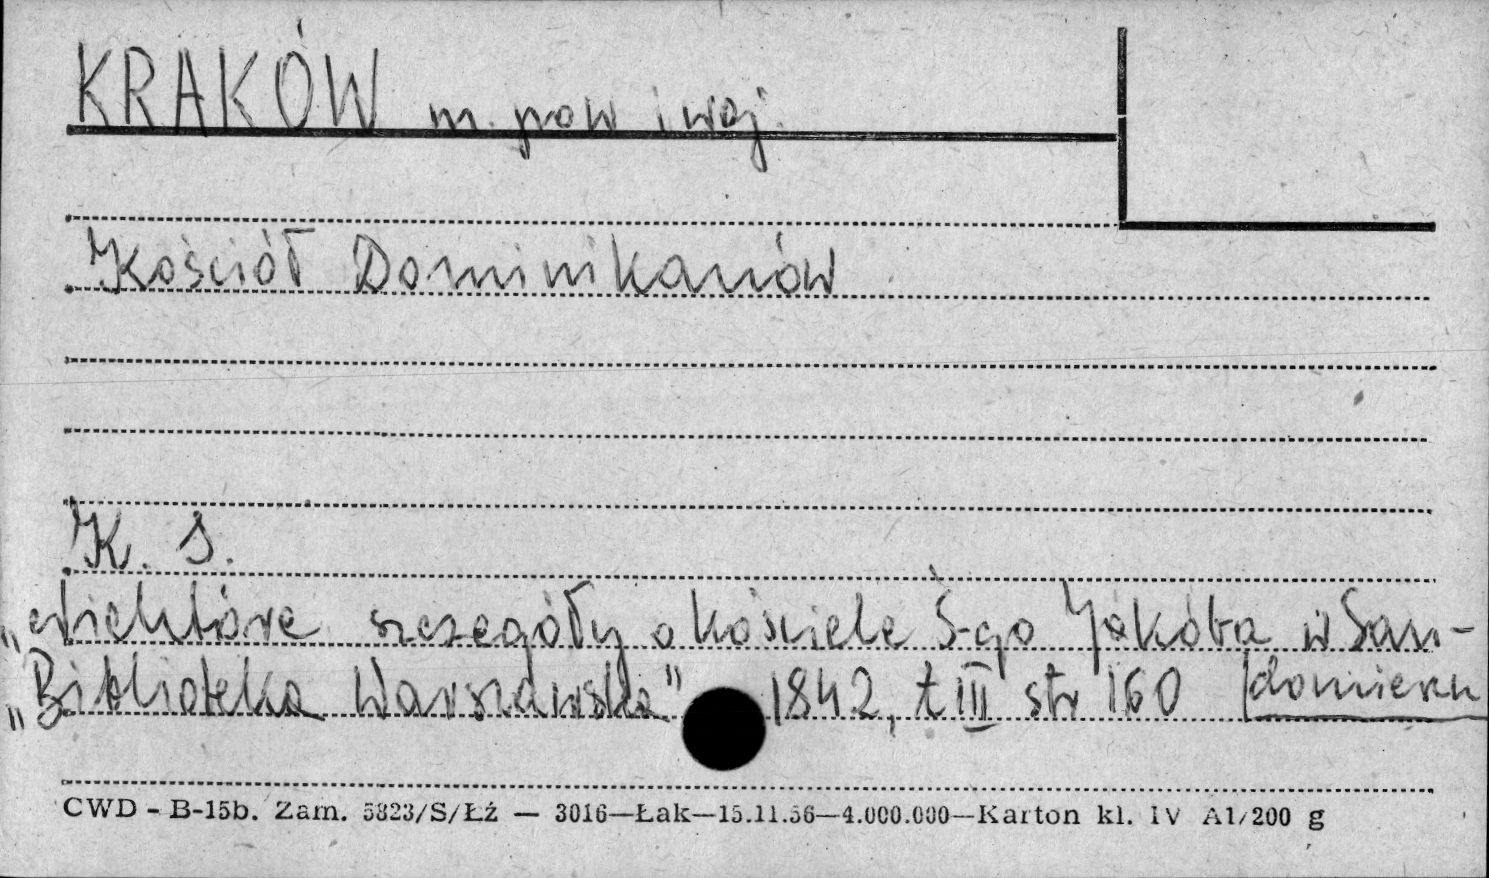 KRAKÓW m. pow i woj.
Kościół Dominikanów
K. S.
„Niektóre szczegóły o kościele Ś-go Jakóba w San-
„Biblioteka Warszawska" 1842, t III str 160 domierzu
CWD - B-15b. Zam. 5823/S/Łż — 3016—Łak—15.11.56—4.000.000—Karton kl. IV A1/200 g